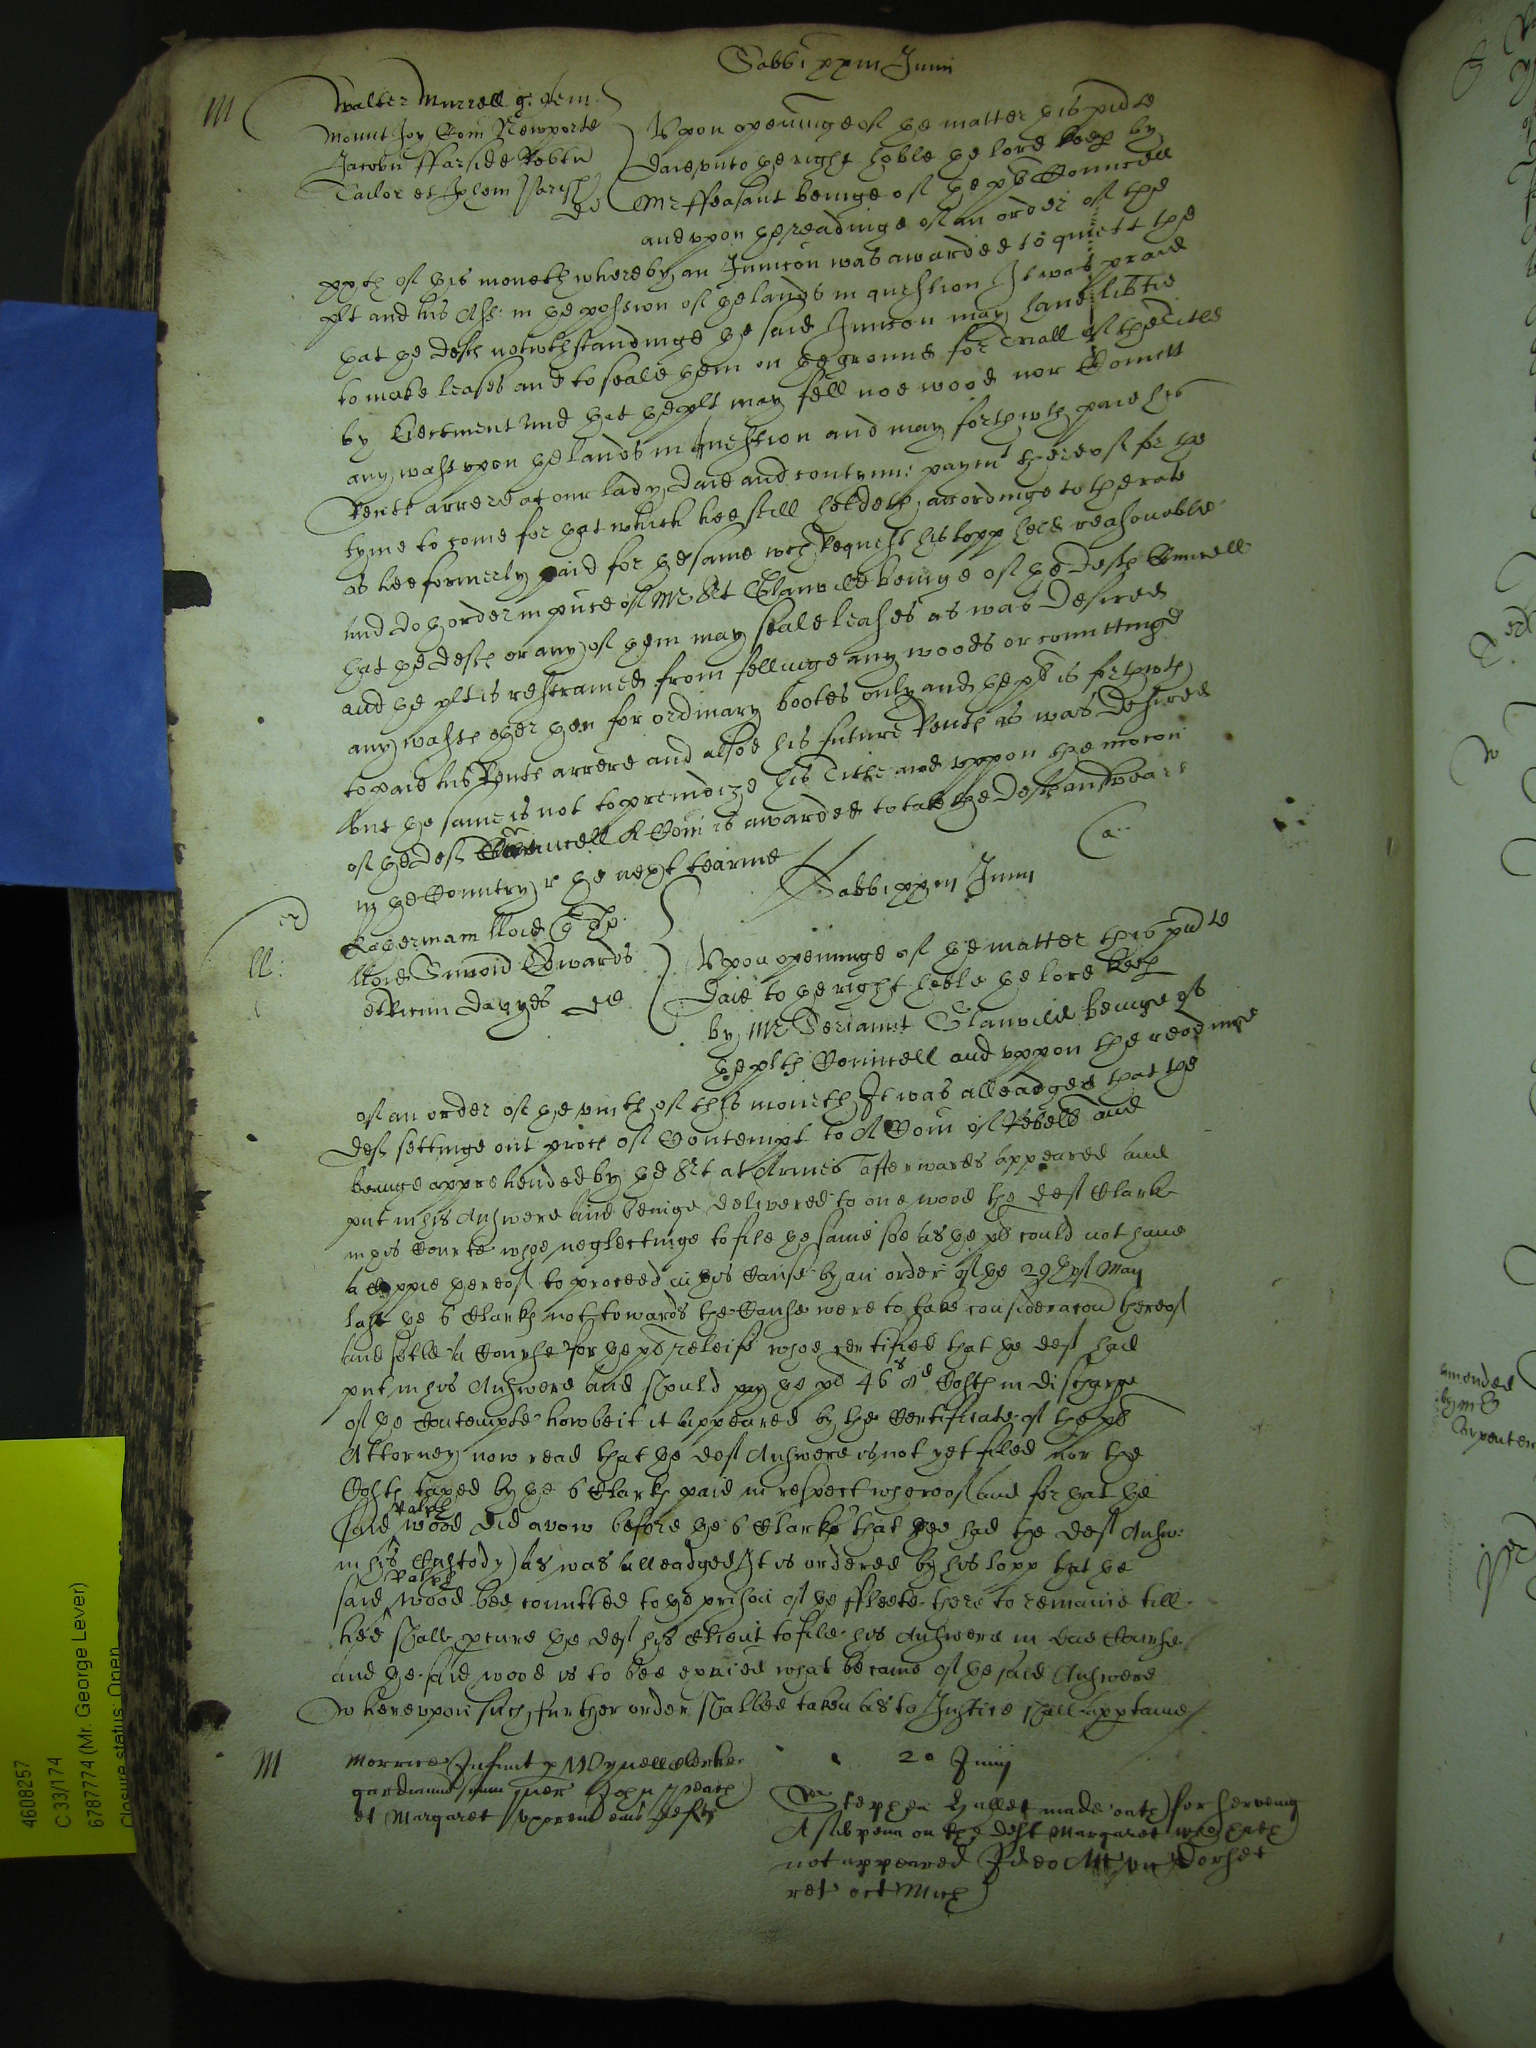 Sabbi xxiii Junii
M
Walter Murrell q. Hen
Mount Joy Com Newporte
Jacobu ffarside Robtu
Tailor et Johem Parish
def
Upon openinge of the matter this pnte
daie unto the right hoble the lord keep by
Mr ffeasant beinge of the pts Councell
and upon the readinge of an order of the
xxth of this moneth whereby an Junccon was awarded to quiett the
plt and his Ass: in the possion of the lands in question It was praied
that the defts notwthstandinge the said Junccon may have libtie
to make leases and to seale them on the ground for triall of the title
by Eiectment And that the plt may fell noe wood nor Comitt
any wast upon the lands in question and may forthwth paie his
Rente arrere at our lady daie and contynue paymt thereof for the
tyme to come for that which hee still holdeth accordinge to the rate
as hee formerly paid for the same wch Request his lopp held reasonable
And doth order in pnce of Mr Srt Glanvild beinge of the defts Councell
that the defts or any of them may seale leases as was desired
and the plt is restrained from fellinge any woods or committinge
any wasts other then for ordinary bootes only and the pt is forthwth
to paie his Rente arrere and alsoe his future Rents as was desired
but the same is not to preiudize his title and uppon the mocon
of the defts Councell A Com is awarded to take the defts answeare
in the Country r the next tearme
Sabbi xxiii Junii
ll:
lloid
lloid Edwards
et davyes def
Upon openinge of the matter this pnte
daie to the right hoble the lord keep
by Mr Seriaunt Glanvild beinge of
the plts Councell and uppon the readinge
of an order of the viith of this moneth It was alleadged that the
deft settinge out proces of Contempt to A Com of Rebell and
beinge apprehended by the Srt at Armes afterwards appeared and
put in his Answere and beinge delivered to one wood the deft Clark
in this Courte whoe neglectinge to file the same soe as the pt could not have
a Coppie thereof to proceed in this Cause by an order of the 29th of May
last the 6 Clarks not towards the Cause were to take consideracon thereof
and settle a Course for the pts releife whoe certified that the deft had
put in his Answere and should pay the pt 46s 8d Costs in discharge
of the Contempte howbeit it appeared by the Certificate of the pts
Attorney now read that the deft Answere is not yet filed nor the
Costs taxed by the 6 Clarks paid in respect whereof and for that the
said Ralph wood did avow before the 6 Clarks that hee had the deft Answ:
in his Custody as was alleadged It is ordered by his lopp that the
said Ralph Wood bee comitted to the prison of the ffleete there to remaine till
hee shall pcure the deft his Client to file his Answere in due Course
and the said wood is to bee exaied what became of the said Answere
Whereupon such further order shalbee taken as to Justice shall apptaine
M
Morrice Infant p Wynell Clerke
gardianum suum quer John
et Margaret uxorem eius defts
20 Junij
Stephen Hallet made oath for serveing
A subpena on the deft Margaret who hath
not appeared Ideo Att vic Dorset
ret oct Mich
amended
by mr
Carpenter
4608257
C 33/174
6787774 (Mr. George Lever)
Closure status: Open